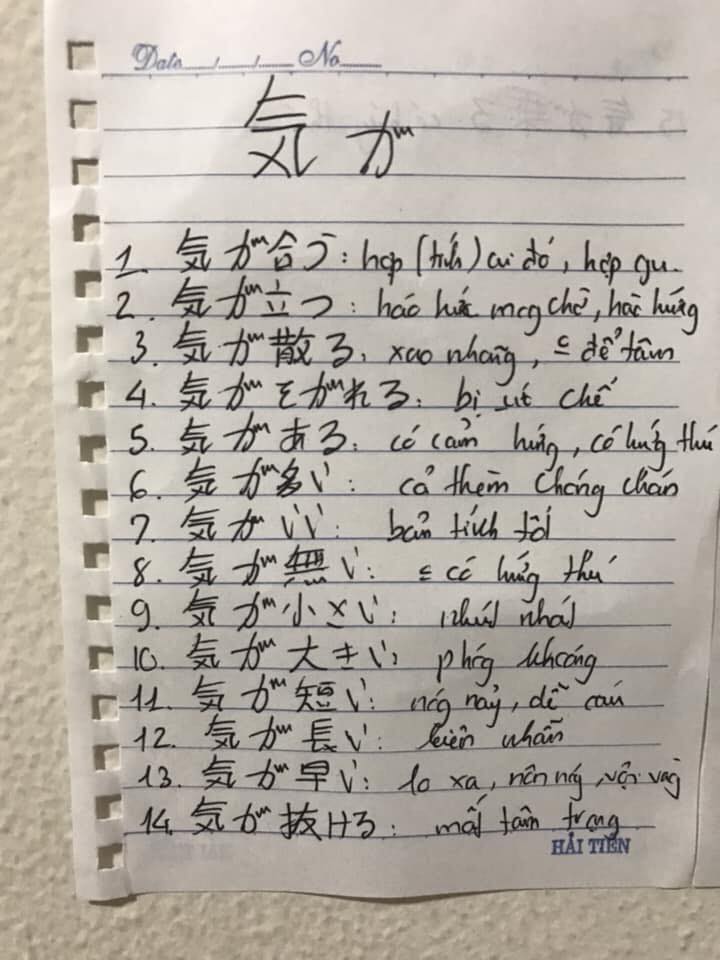 Date__/__/__ No__
気が
1. 気が合う: hợp (tính) ai đó, hợp gu.
2. 気が立つ: háo hức mog chờ, hào hứng
3. 気が散る: xao nhãng, c để tâm
4. 気がそがれる: bị ức chế
5. 気がある: có cảm hứng, có hứng thú
6. 気が多い: cả thèm chóng chán
7. 気がいい: bản tính tốt
8. 気が無い: c có hứng thú
9. 気が小さい: nhút nhát
10. 気が大きい: phóg khoáng
11. 気が短い: nóg nảy, dễ cáu
12. 気が長い: kiên nhẫn
13. 気が早い: lo xa, nôn nóg, vội vàg
14. 気が抜ける: mất tâm trạg
HẢI TIẾN